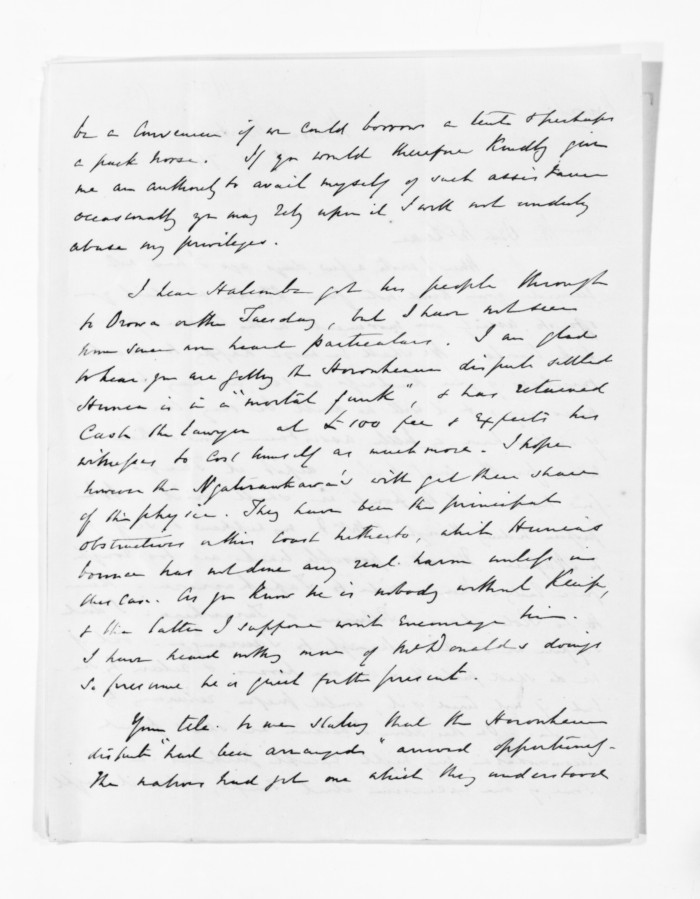 be a convenience if we could borrow a tent & perhaps
a pack horse. If you would therefore kindly give
me an authority to avail myself of such assistance
occasionally you may rely upon it I will not unduly
abuse my privileges.
I hear Halcombe got his people through
to Oroua on the Tuesday, but I have not seen
him since nor heard particulars. I am glad
to hear you are getting the Horowhenua dispute settled
Hunia is in a "mortal funk", & has retained
Cash the lawyer at £100 fee & expects his
witnesses to cost himself as much more. I hope
however the Ngatiraukawa's will get their share
of the physic. They have been the principal
obstructives on this Coast hitherto, while Hunia's
bounce has not done any real harm unless in
this case. As you know he is nobody without Keepa,
& the latter I suppose won't encourage him.
I have heard nothing more of McDonald's doings
so presume he is quiet for the present.
Your tele. to me stating that the Horowhenua
dispute "had been arranged" arrived opportunely.
The natives had got one which they understood